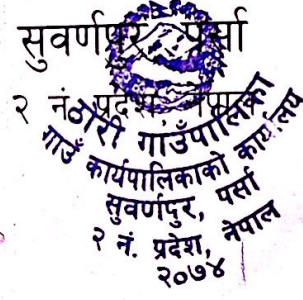 सुवर्णपुर, पर्सा
२ नं. प्रदेश, नेपाल
ठोरी गाउँपालिका
गाउँ कार्यपालिकाको कार्यालय
सुवर्णपुर, पर्सा
२ नं. प्रदेश, नेपाल
२०७४